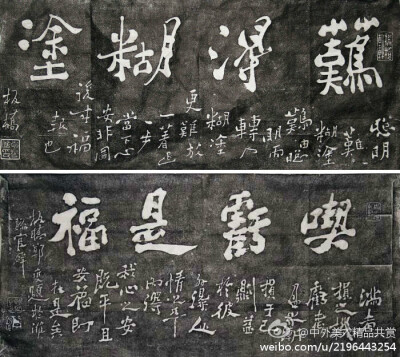 難得糊塗
聰明
難
糊塗
難由聰
明而
轉入
糊塗
更難
一着退
一步
當下心
安非圖
後来福
報也
板橋
喫虧是福
滿者
損之機
虧者
盈之漸
損于己
則益
於彼
外得人
情之平
內得
我心之安
既平且
安福即
在是矣
板橋鄭燮題於濰
縣官署
@中外美术精品共赏
weibo.com/u/2196443254